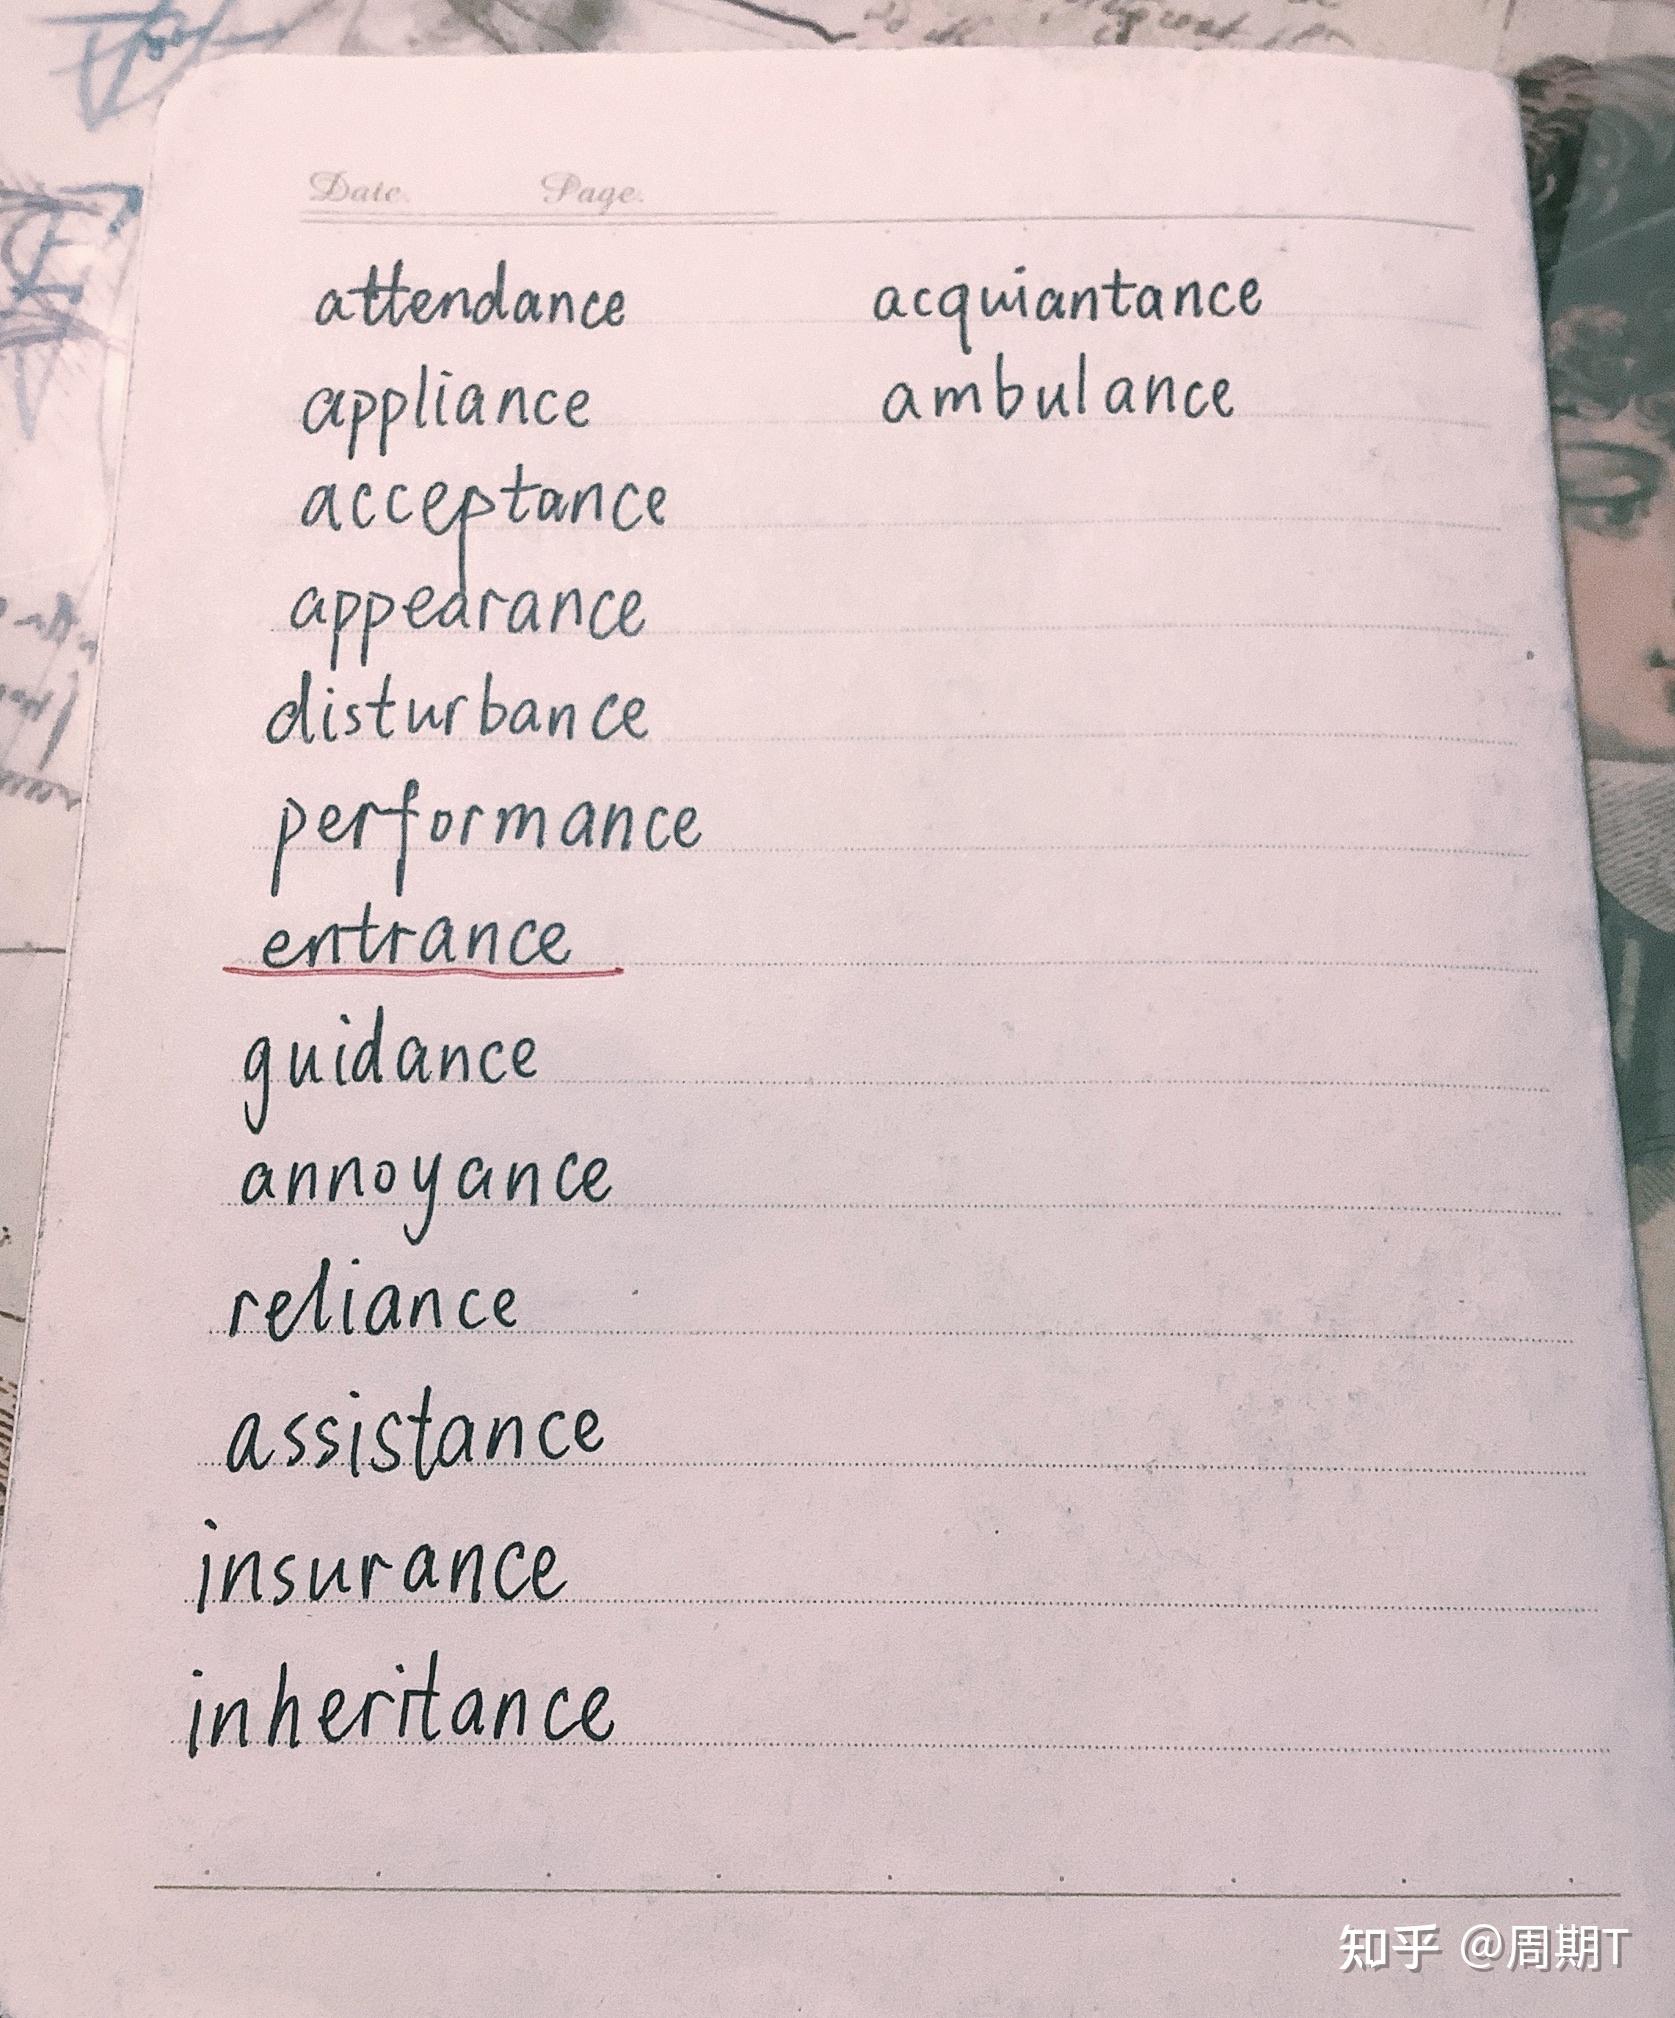 Date. Page.
attendance
appliance
acceptance
appearance
disturbance
performance
entrance
guidance
annoyance
reliance
assistance
insurance
inheritance
acquiantance
ambulance
知乎 @周期T